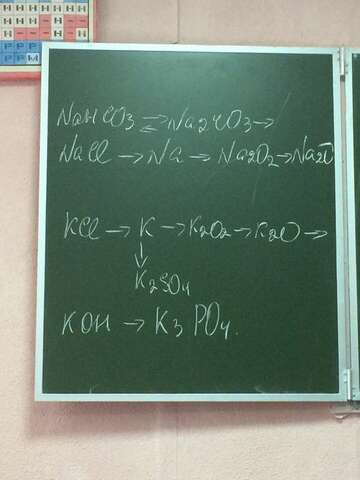 NaHCO3 ⇄ Na2CO3 →
NaCl → Na → Na2O2 → Na2O
KCl → K → K2O2 → K2O →
↓
K2SO4
KOH → K3PO4.